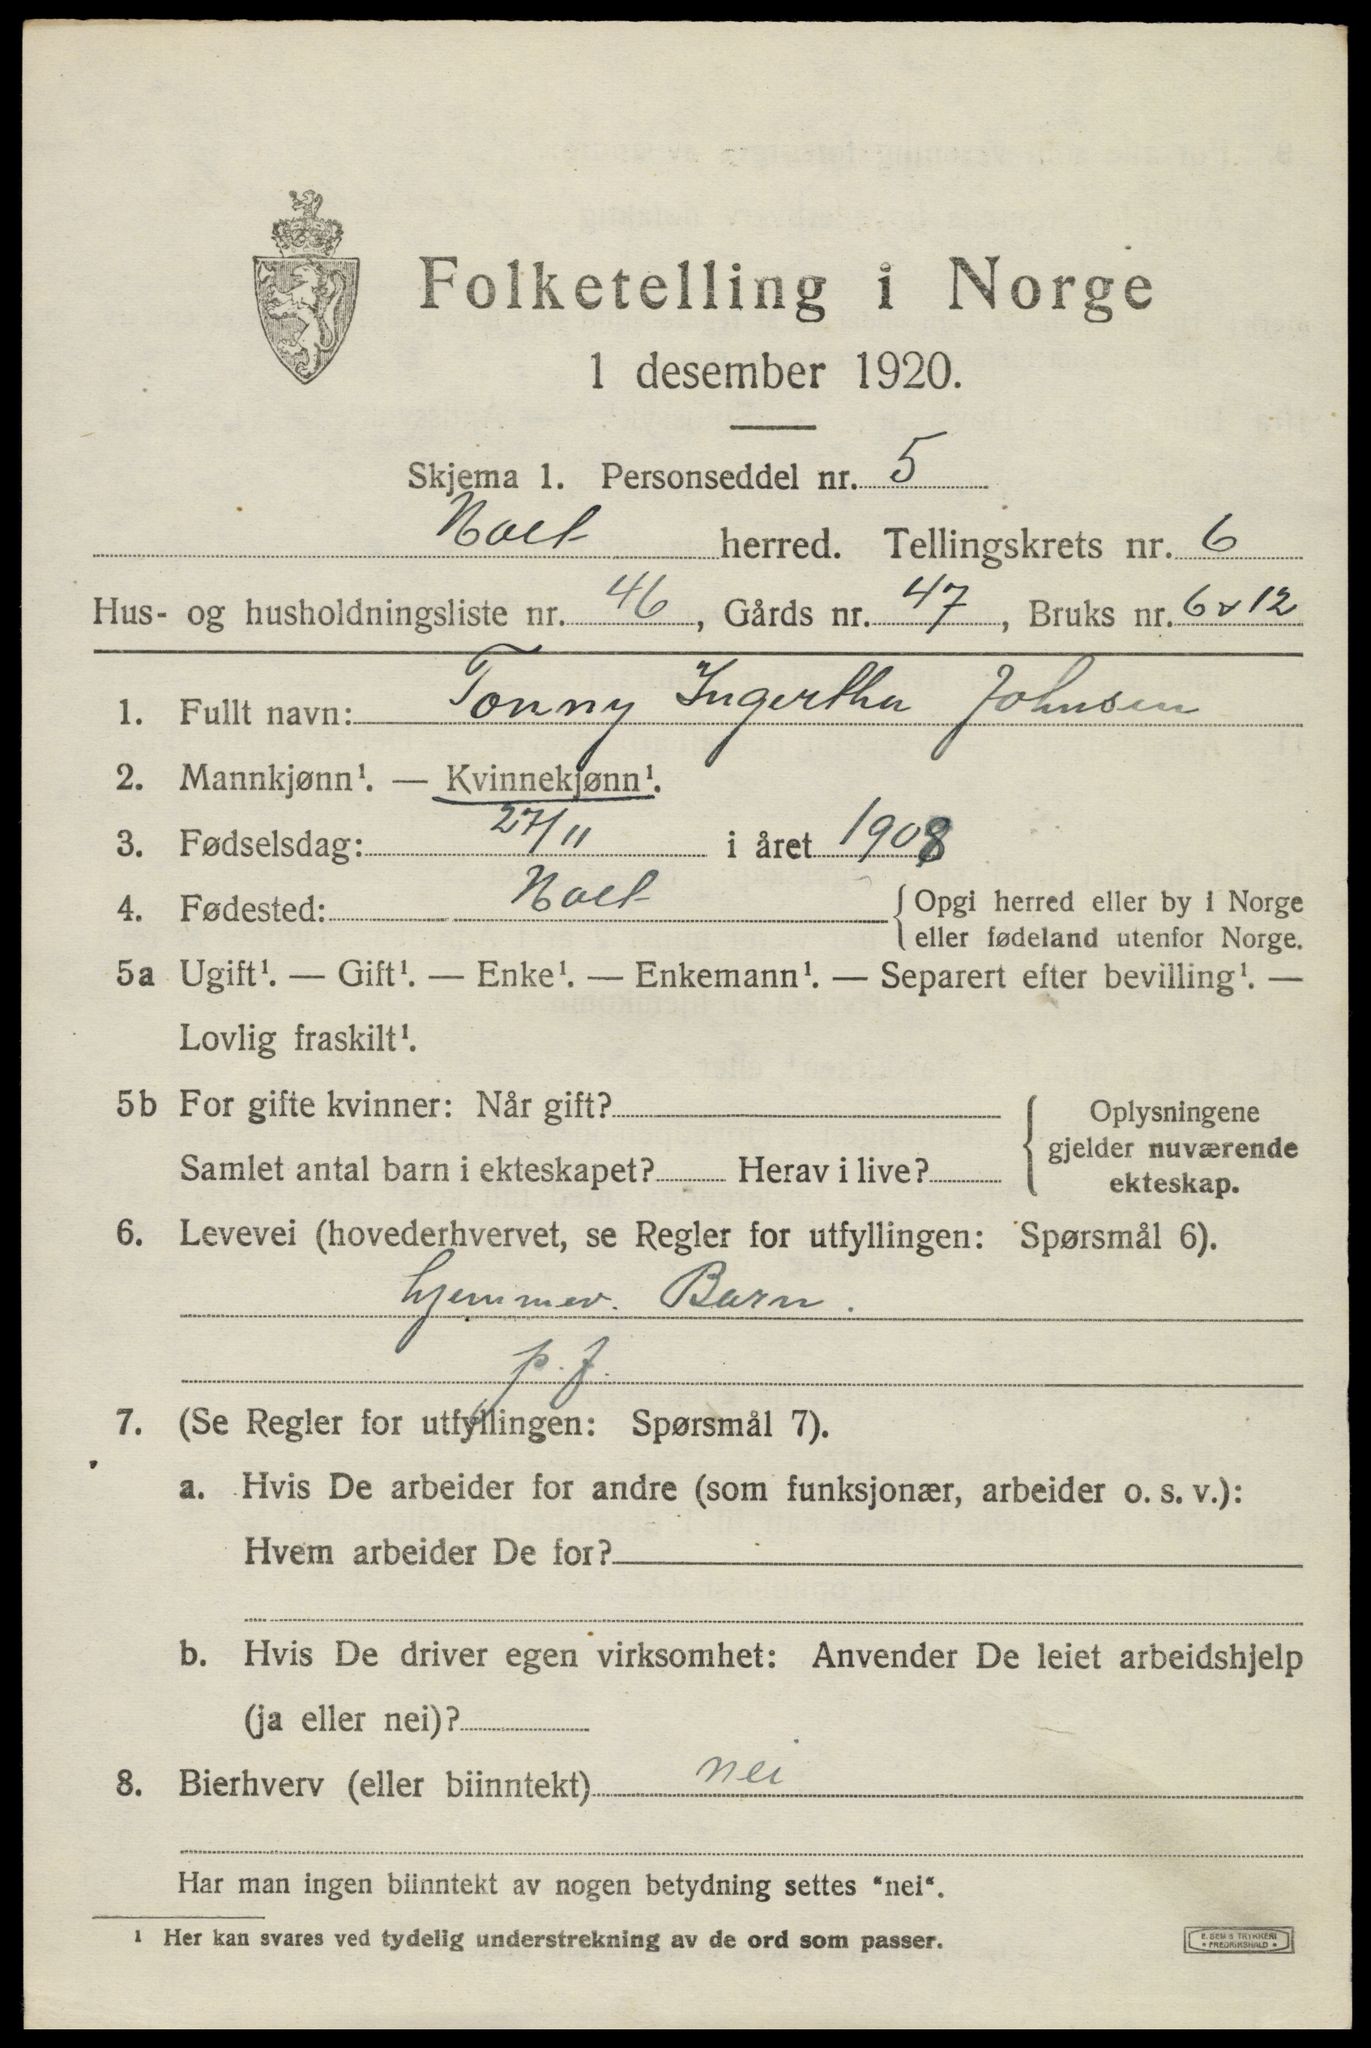 Folketelling i Norge
1 desember 1920.
Skjema 1. Personseddel nr. 5
Holt herred. Tellingskrets nr. 6
Hus- og husholdningsliste nr. 46, Gårds nr. 47, Bruks nr. 6 & 12
1. Fullt navn: Tonny Ingertha Johnsen
2. Mannkjønn¹. — Kvinnekjønn¹.
3. Fødselsdag: 27/11 i året 1908
4. Fødested: Holt { Opgi herred eller by i Norge
eller fødeland utenfor Norge.
5a Ugift¹. — Gift¹. — Enke¹. — Enkemann¹. — Separert efter bevilling¹. —
Lovlig fraskilt¹.
5b For gifte kvinner: Når gift?
Samlet antal barn i ekteskapet? Herav i live?
{ Oplysningene
gjelder nuværende
ekteskap.
6. Levevei (hovederhvervet, se Regler for utfyllingen: Spørsmål 6).
hjemmev. Barn.
p. f.
7. (Se Regler for utfyllingen: Spørsmål 7).
a. Hvis De arbeider for andre (som funksjonær, arbeider o. s. v.):
Hvem arbeider De for?
b. Hvis De driver egen virksomhet: Anvender De leiet arbeidshjelp
(ja eller nei)?
8. Bierhverv (eller biinntekt) nei
Har man ingen biinntekt av nogen betydning settes "nei".
¹ Her kan svares ved tydelig understrekning av de ord som passer.
E. SEM'S TRYKKERI
• FREDRIKSHALD •